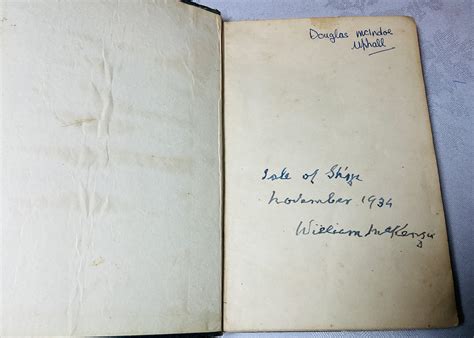 Douglas McIndoe
Uphall
Isle of Skye
November 1934
William McKenzie